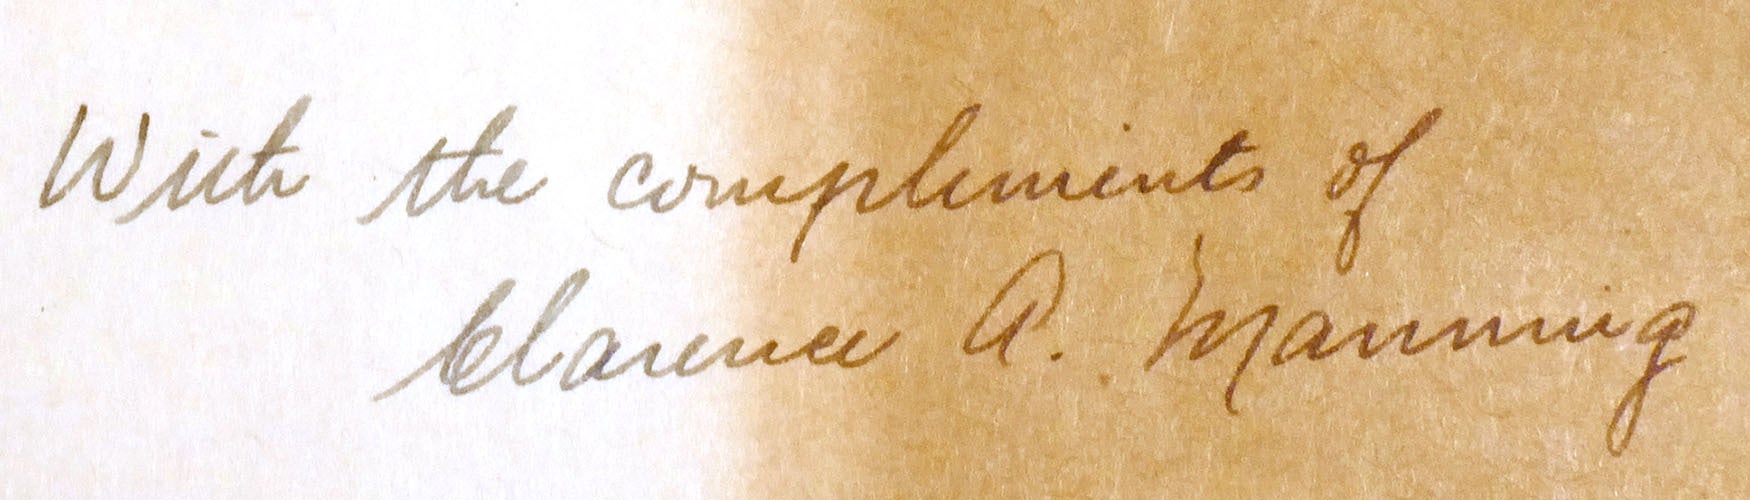 With the compliments of
Clarence A. Manning